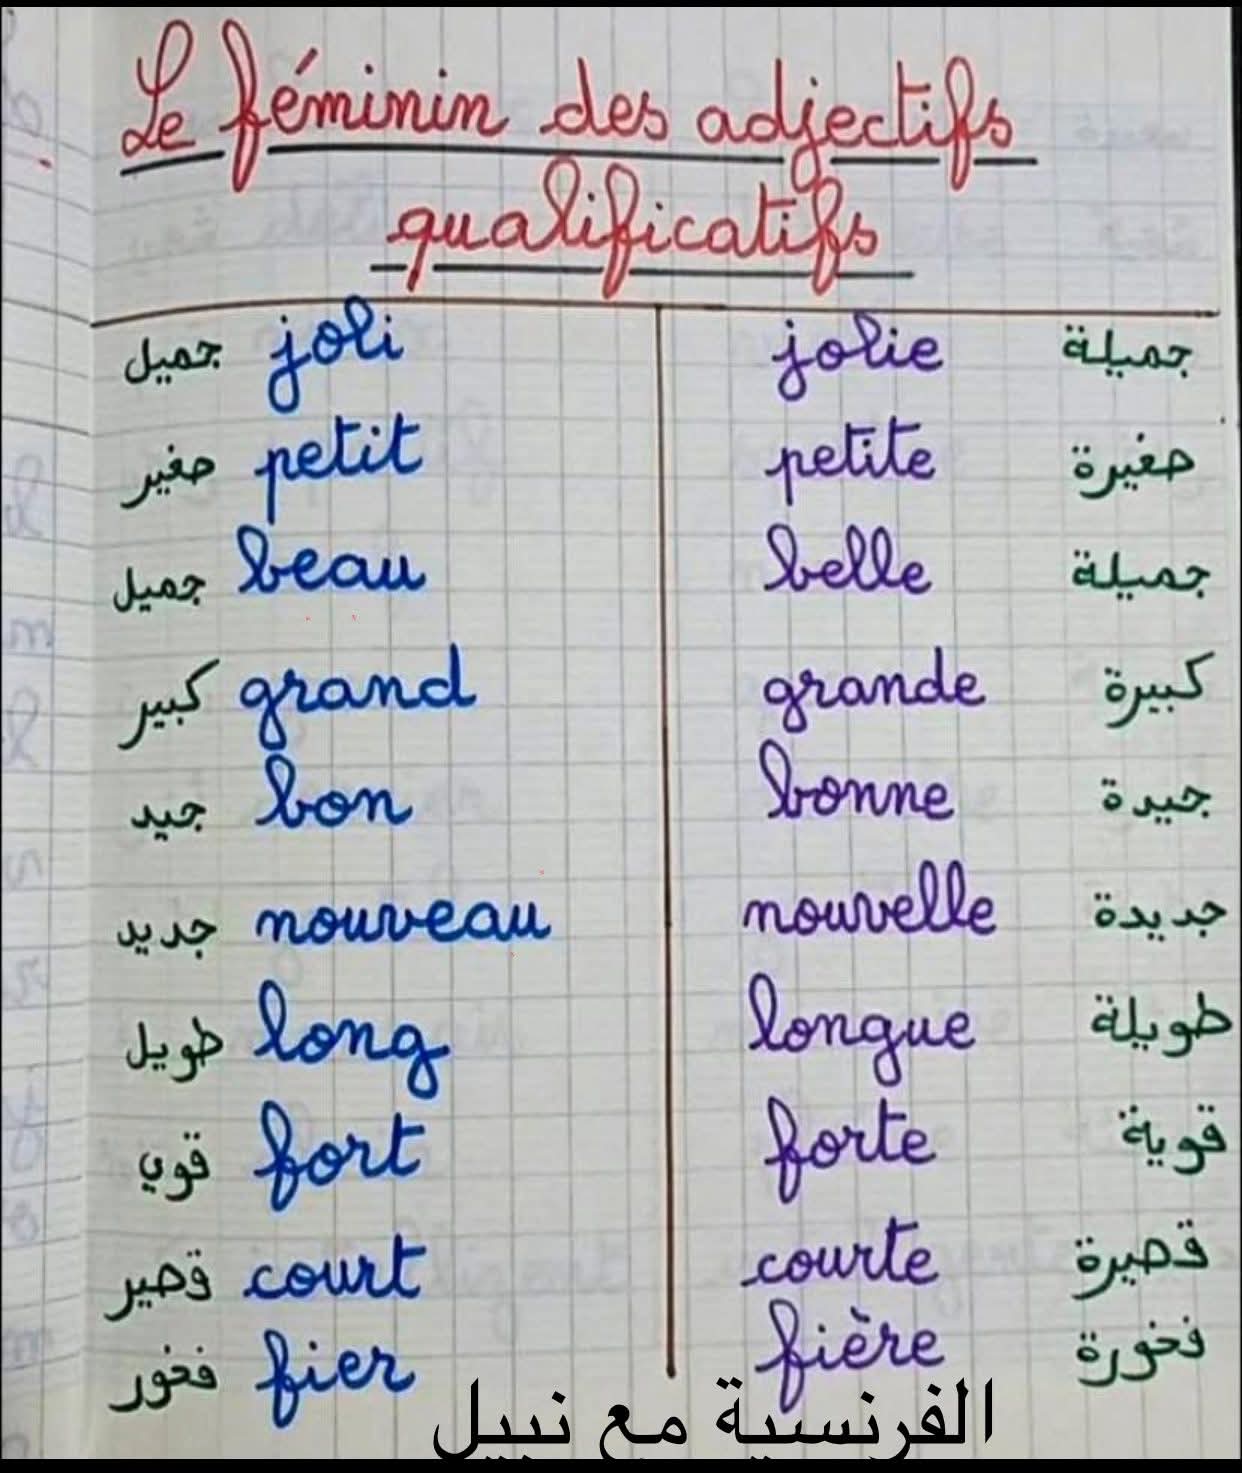 Le féminin des adjectifs
qualificatifs
جميل joli jolie جميلة
صغير petit petite صغيرة
جميل beau belle جميلة
كبير grand grande كبيرة
جيد bon bonne جيدة
جديد nouveau nouvelle جديدة
طويل long longue طويلة
قوي fort forte قوية
قصير court courte قصيرة
فخور fier fière فخورة
الفرنسية مع نبيل